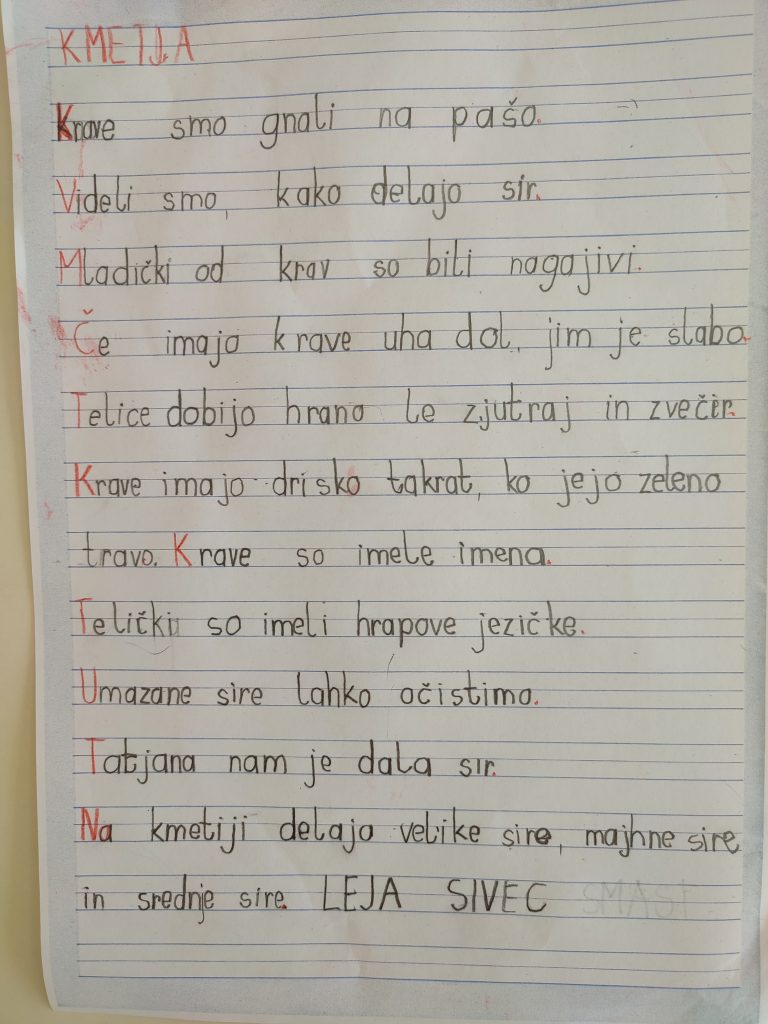 KMETIJA
Krave smo gnali na pašo.
Videli smo, kako delajo sir.
Mladički od krav so bili nagajivi.
Če imajo krave uha dol, jim je slabo.
Telice dobijo hrano le zjutraj in zvečer.
Krave imajo drisko takrat, ko jejo zeleno
travo. Krave so imele imena.
Telički so imeli hrapove jezičke.
Umazane sire lahko očistimo.
Tatjana nam je dala sir.
Na kmetiji delajo velike sire, majhne sire
in srednje sire. LEJA SIVEC